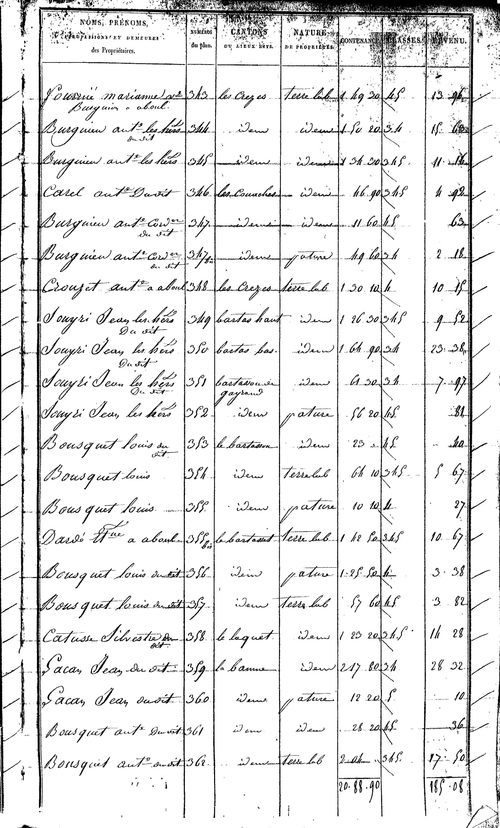 NOMS, PRÉNOMS, PROFESSIONS ET DEMEURES des Propriétaires. | NUMÉROS du plan. | CANTONS OU LIEUX DITS. | NATURE DE PROPRIÉTÉS. | CONTENANCE. | CLASSES. | REVENU.
marianne 343 les Crezes terre lab 1 49 30 45 13
Burguiere a aboul
Burguiere ant.e les hérs 344 idem idem 1 50 20 34 15
du dit
Burguiere ant.e les hérs 345 idem idem 1 34 30 345 11
Carel ant.e Du dit 346 les Counches idem 46 90 345 4 92
Burguiere ant.e Cord.er 347 idem idem 11 60 45 63
du dit
Burguiere ant.e Cord.er 347 bis idem pature 49 60 34 2 18
du dit
Crouzet ant.e a aboul 348 les Crezes terre lab 1 30 10 4 10 15
Souyri Jean les hérs 349 bartas haut idem 1 26 30 345 9 52
Du dit
Souyri Jean les hérs 350 bartas bas idem 1 64 90 34 23 38
Du dit
Souyri Jean les hérs 351 bartassou de idem 61 30 34 7 97
Du dit gayraud
Souyri Jean les hérs 352 idem pature 56 20 45 84
Bousquet louis du 353 le bartassou idem 23 45 40
dit
Bousquet louis 354 idem terre lab 64 10 345 5 67
Bousquet louis 355 idem pature 10 10 4 27
Dardé a aboul 355 bis le bartassou terre lab 1 42 50 345 10 67
Bousquet louis du dit 356 idem pature 1 25 50 4 3 38
Bousquet louis du dit 357 idem terre lab 57 60 45 3 82
Catusse Silvestre du 358 le laquet idem 1 23 20 345 14 28
dit
Gacan Jean du dit 359 la banne idem 2 47 80 34 28 32
Gacan Jean du dit 360 idem pature 12 20 5 10
Bousquet ant.e du dit 361 idem idem 28 20 45 36
Bousquet ant.e du dit 362 idem terre lab 2 04 345 17 50
20.88.90 185.08